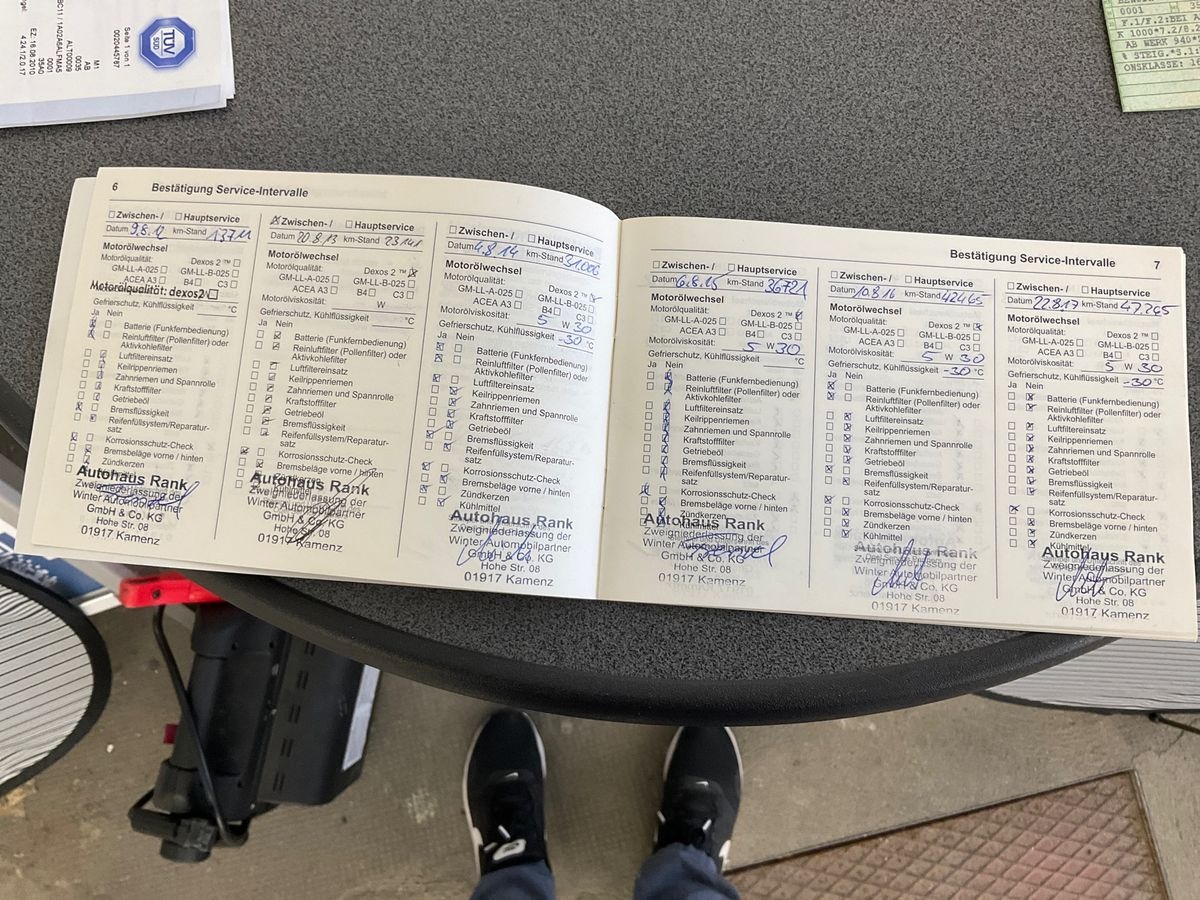 TÜV
SÜD
Seite 1 von 1
0020445787
M1
AB
0035
ALT00009
0001
EZ: 16.08.2010
4.24.1/2.0.17
0001
F.1/F.2:BEI
K 1000*7.2/8.2
AB WERK 940*
% STEIG.*5.1
ONSKLASSE: 16
6 Bestätigung Service-Intervalle
Zwischen-/ Hauptservice
Datum 9.8.12 km-Stand 13711
Motorölwechsel
Motorölqualität: Dexos 2 ™
GM-LL-A-025 GM-LL-B-025
ACEA A3 B4 C3
Motorölqualität: dexos2
Gefrierschutz, Kühlflüssigkeit °C
Ja Nein
Batterie (Funkfernbedienung)
Reinluftfilter (Pollenfilter) oder
Aktivkohlefilter
Luftfiltereinsatz
Keilrippenriemen
Zahnriemen und Spannrolle
Kraftstofffilter
Getriebeöl
Bremsflüssigkeit
Reifenfüllsystem/Reparatur-
satz
Korrosionsschutz-Check
Bremsbeläge vorne / hinten
Zündkerzen
Autohaus Rank
Zweigniederlassung der
Winter Automobilpartner
GmbH & Co. KG
Hohe Str. 08
01917 Kamenz
Zwischen-/ Hauptservice
Datum 20.8.13 km-Stand 23141
Motorölwechsel
Motorölqualität: Dexos 2 ™
GM-LL-A-025 GM-LL-B-025
ACEA A3 B4 C3
Motorölviskosität: W
Gefrierschutz, Kühlflüssigkeit °C
Ja Nein
Batterie (Funkfernbedienung)
Reinluftfilter (Pollenfilter) oder
Aktivkohlefilter
Luftfiltereinsatz
Keilrippenriemen
Zahnriemen und Spannrolle
Kraftstofffilter
Getriebeöl
Bremsflüssigkeit
Reifenfüllsystem/Reparatur-
satz
Korrosionsschutz-Check
Bremsbeläge vorne / hinten
Autohaus Rank
Zweigniederlassung der
Winter Automobilpartner
GmbH & Co. KG
Hohe Str. 08
01917 Kamenz
Zwischen-/ Hauptservice
Datum 4.8.14 km-Stand 31.006
Motorölwechsel
Motorölqualität: Dexos 2 ™
GM-LL-A-025 GM-LL-B-025
ACEA A3 B4 C3
Motorölviskosität: 5 W 30
Gefrierschutz, Kühlflüssigkeit -30 °C
Ja Nein
Batterie (Funkfernbedienung)
Reinluftfilter (Pollenfilter) oder
Aktivkohlefilter
Luftfiltereinsatz
Keilrippenriemen
Zahnriemen und Spannrolle
Kraftstofffilter
Getriebeöl
Bremsflüssigkeit
Reifenfüllsystem/Reparatur-
satz
Korrosionsschutz-Check
Bremsbeläge vorne / hinten
Zündkerzen
Kühlmittel
Autohaus Rank
Zweigniederlassung der
Winter Automobilpartner
GmbH & Co. KG
01917 Kamenz
Bestätigung Service-Intervalle 7
Zwischen-/ Hauptservice
Datum 6.8.15 km-Stand 36721
Motorölwechsel
Motorölqualität: Dexos 2 ™
GM-LL-A-025 GM-LL-B-025
ACEA A3 B4 C3
Motorölviskosität: 5 W 30
Gefrierschutz, Kühlflüssigkeit °C
Ja Nein
Batterie (Funkfernbedienung)
Reinluftfilter (Pollenfilter) oder
Aktivkohlefilter
Luftfiltereinsatz
Keilrippenriemen
Zahnriemen und Spannrolle
Kraftstofffilter
Getriebeöl
Bremsflüssigkeit
Reifenfüllsystem/Reparatur-
satz
Korrosionsschutz-Check
Bremsbeläge vorne / hinten
Zündkerzen
Kühlmittel
Autohaus Rank
Zweigniederlassung der
Winter Automobilpartner
GmbH & Co. KG
Hohe Str. 08
01917 Kamenz
Zwischen-/ Hauptservice
Datum 10.8.16 km-Stand 42465
Motorölwechsel
Motorölqualität: Dexos 2 ™
GM-LL-A-025 GM-LL-B-025
ACEA A3 B4 C3
Motorölviskosität: 5 W 30
Gefrierschutz, Kühlflüssigkeit -30 °C
Ja Nein
Batterie (Funkfernbedienung)
Reinluftfilter (Pollenfilter) oder
Aktivkohlefilter
Luftfiltereinsatz
Keilrippenriemen
Zahnriemen und Spannrolle
Kraftstofffilter
Getriebeöl
Bremsflüssigkeit
Reifenfüllsystem/Reparatur-
satz
Korrosionsschutz-Check
Bremsbeläge vorne / hinten
Zündkerzen
Kühlmittel
Autohaus Rank
Zweigniederlassung der
Winter Automobilpartner
GmbH & Co. KG
Hohe Str. 08
01917 Kamenz
Zwischen-/ Hauptservice
Datum 22.8.17 km-Stand 47.265
Motorölwechsel
Motorölqualität: Dexos 2 ™
GM-LL-A-025 GM-LL-B-025
ACEA A3 B4 C3
Motorölviskosität: 5 W 30
Gefrierschutz, Kühlflüssigkeit -30 °C
Ja Nein
Batterie (Funkfernbedienung)
Reinluftfilter (Pollenfilter) oder
Aktivkohlefilter
Luftfiltereinsatz
Keilrippenriemen
Zahnriemen und Spannrolle
Kraftstofffilter
Getriebeöl
Bremsflüssigkeit
Reifenfüllsystem/Reparatur-
satz
Korrosionsschutz-Check
Bremsbeläge vorne / hinten
Zündkerzen
Kühlmittel
Autohaus Rank
Zweigniederlassung der
Winter Automobilpartner
GmbH & Co. KG
Hohe Str. 08
01917 Kamenz